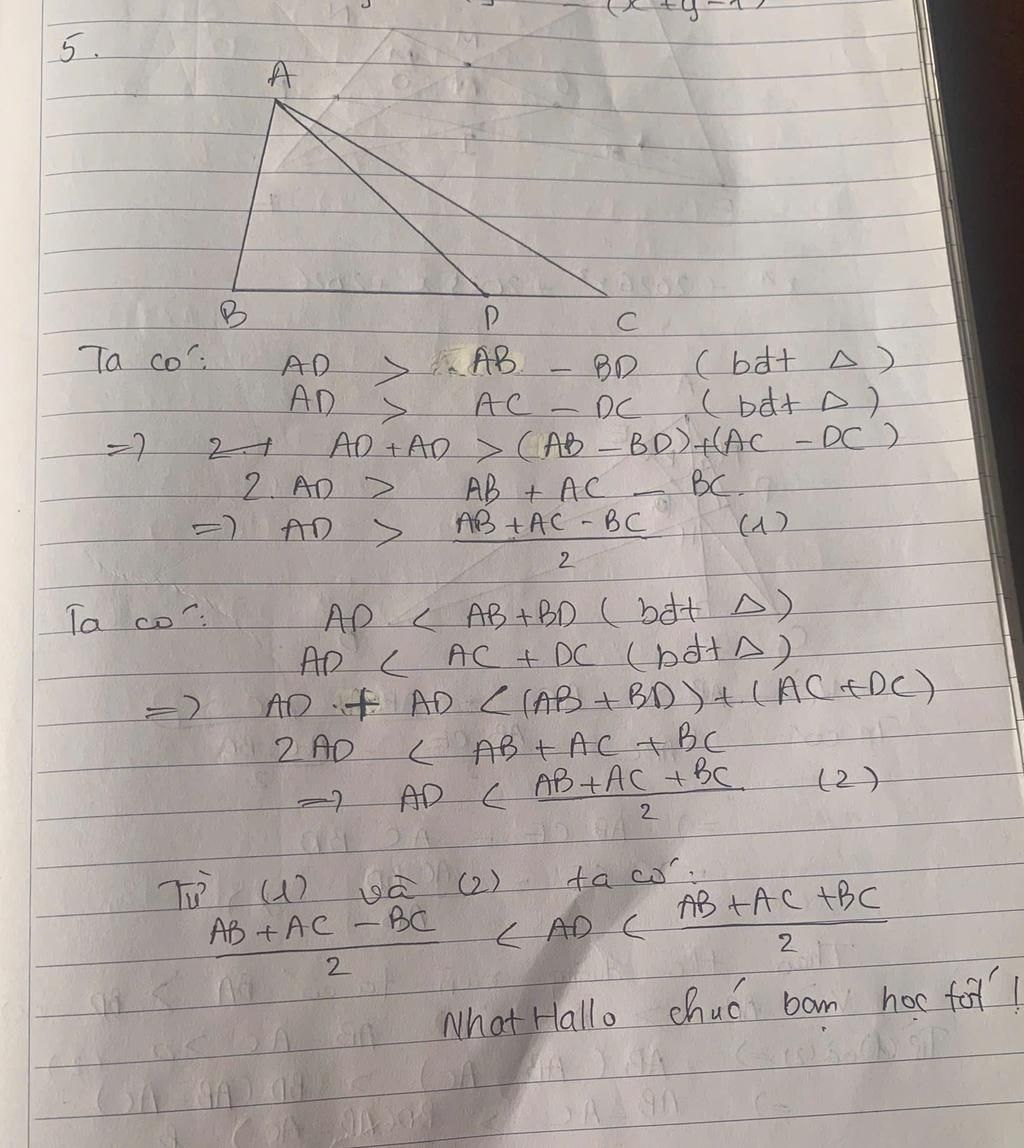 5.
A
B D C
Ta có: AD > AB - BD (bđt △)
AD > AC - DC (bđt △)
=> AD + AD > (AB - BD) + (AC - DC)
2. AD > AB + AC - BC.
=> AD > \frac{AB + AC - BC}{2} (1)
Ta có: AD < AB + BD (bđt △)
AD < AC + DC (bđt △)
=> AD + AD < (AB + BD) + (AC + DC)
2 AD < AB + AC + BC
=> AD < \frac{AB + AC + BC}{2} (2)
Từ (1) và (2) ta có:
\frac{AB + AC - BC}{2} < AD < \frac{AB + AC + BC}{2}
Nhat Hallo chuć bạm học tốt!